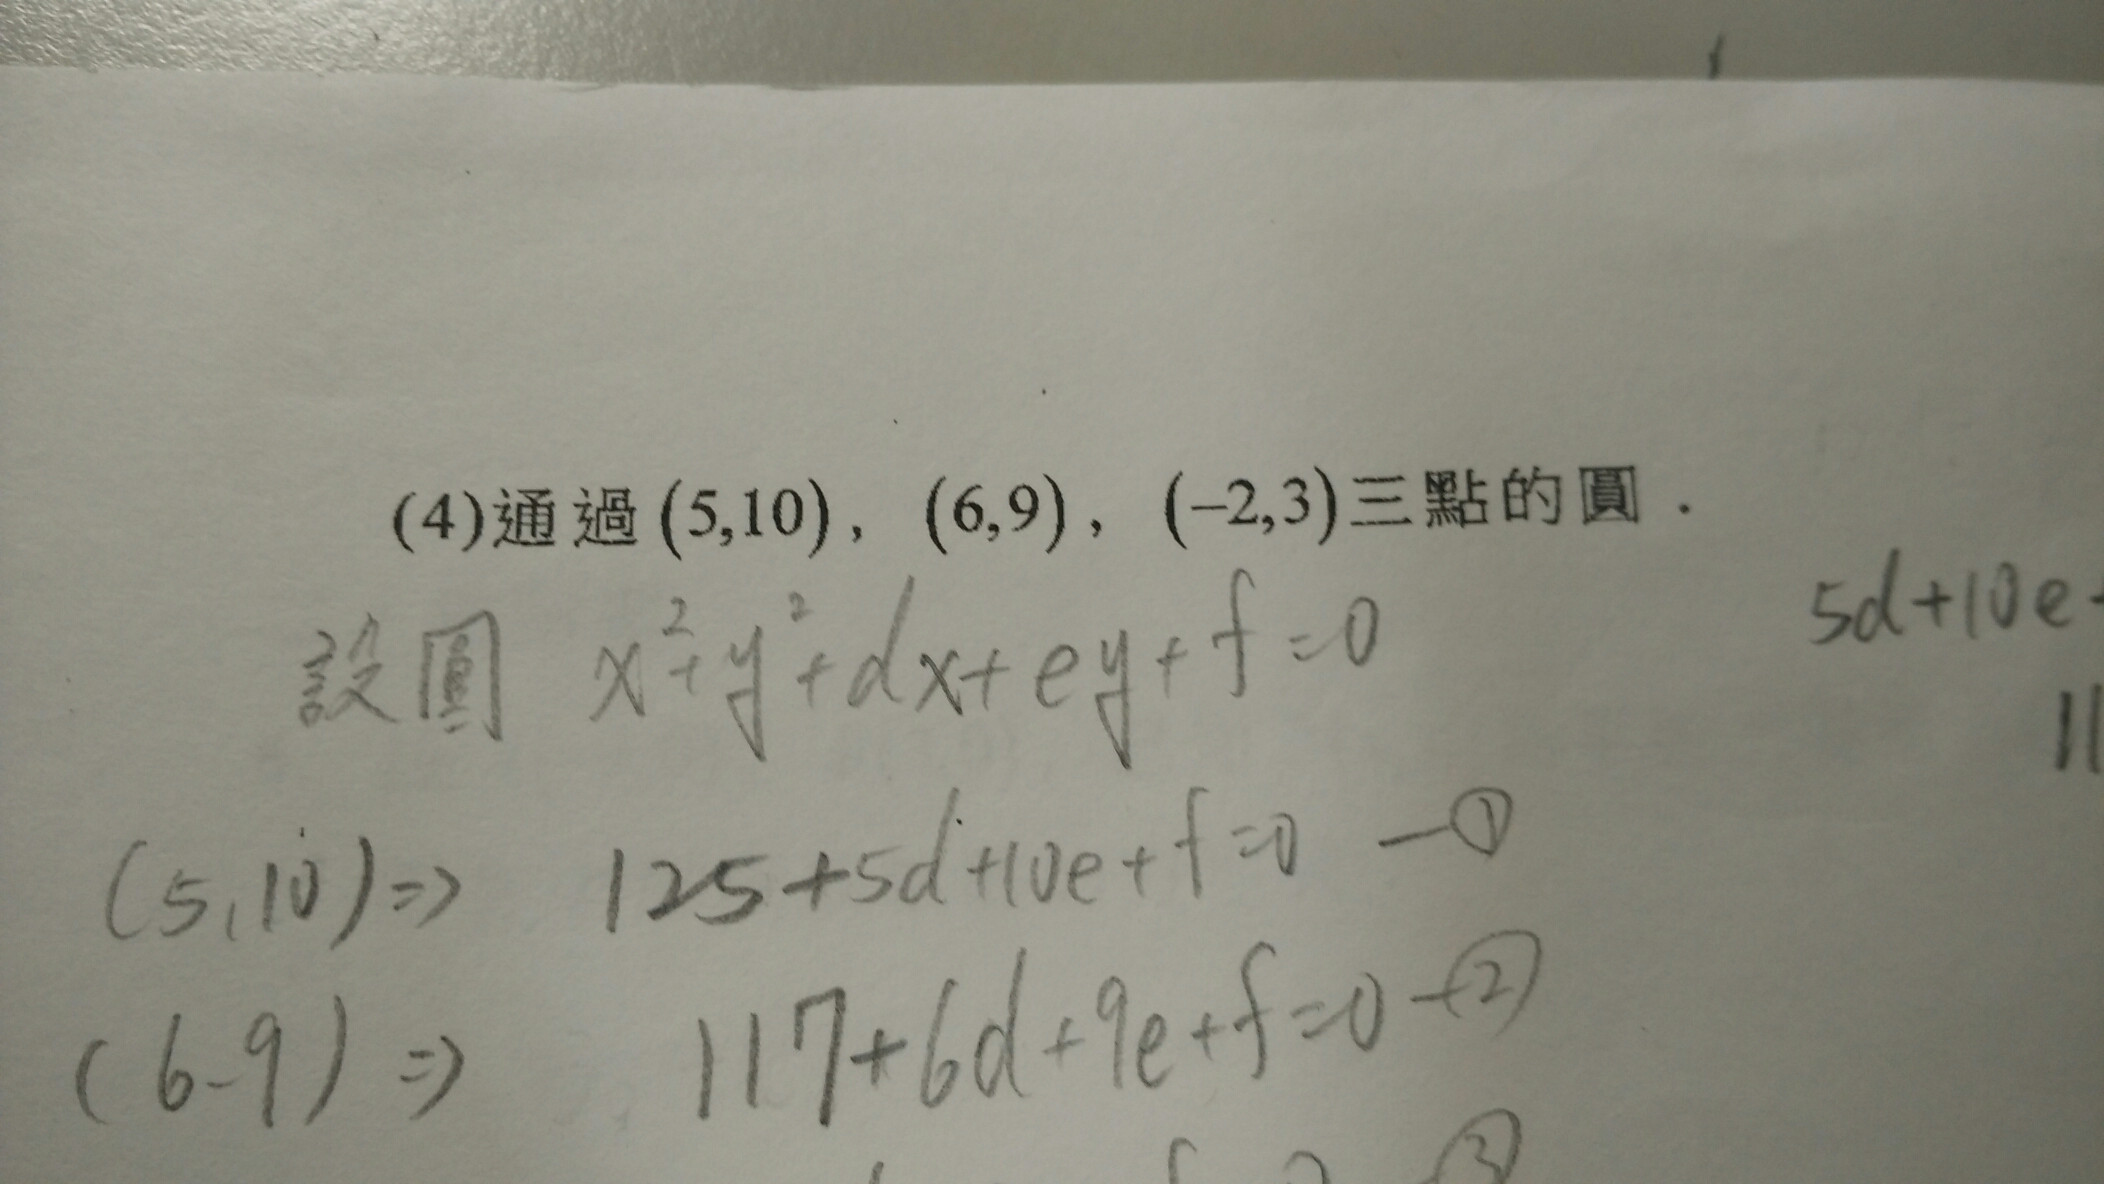 (4)通過(5,10), (6,9), (-2,3)三點的圓.
設圓 x²+y²+dx+ey+f=0
5d+10e+
11
(5,10)=> 125+5d+10e+f=0 —①
(6,9)=> 117+6d+9e+f=0 —②
③